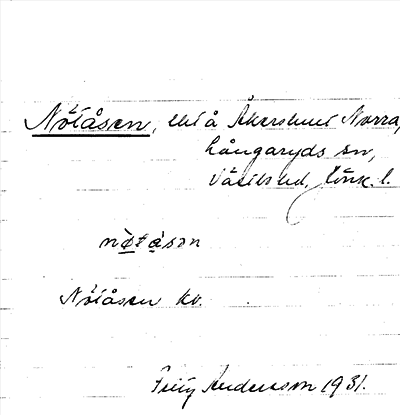 Nötåsen, ht å Åkershult Norra,
Långaryds sn,
Västbo hd, Jönk. l.
nø̀tåsən
Nötåsen kv.
Andersson 1931.